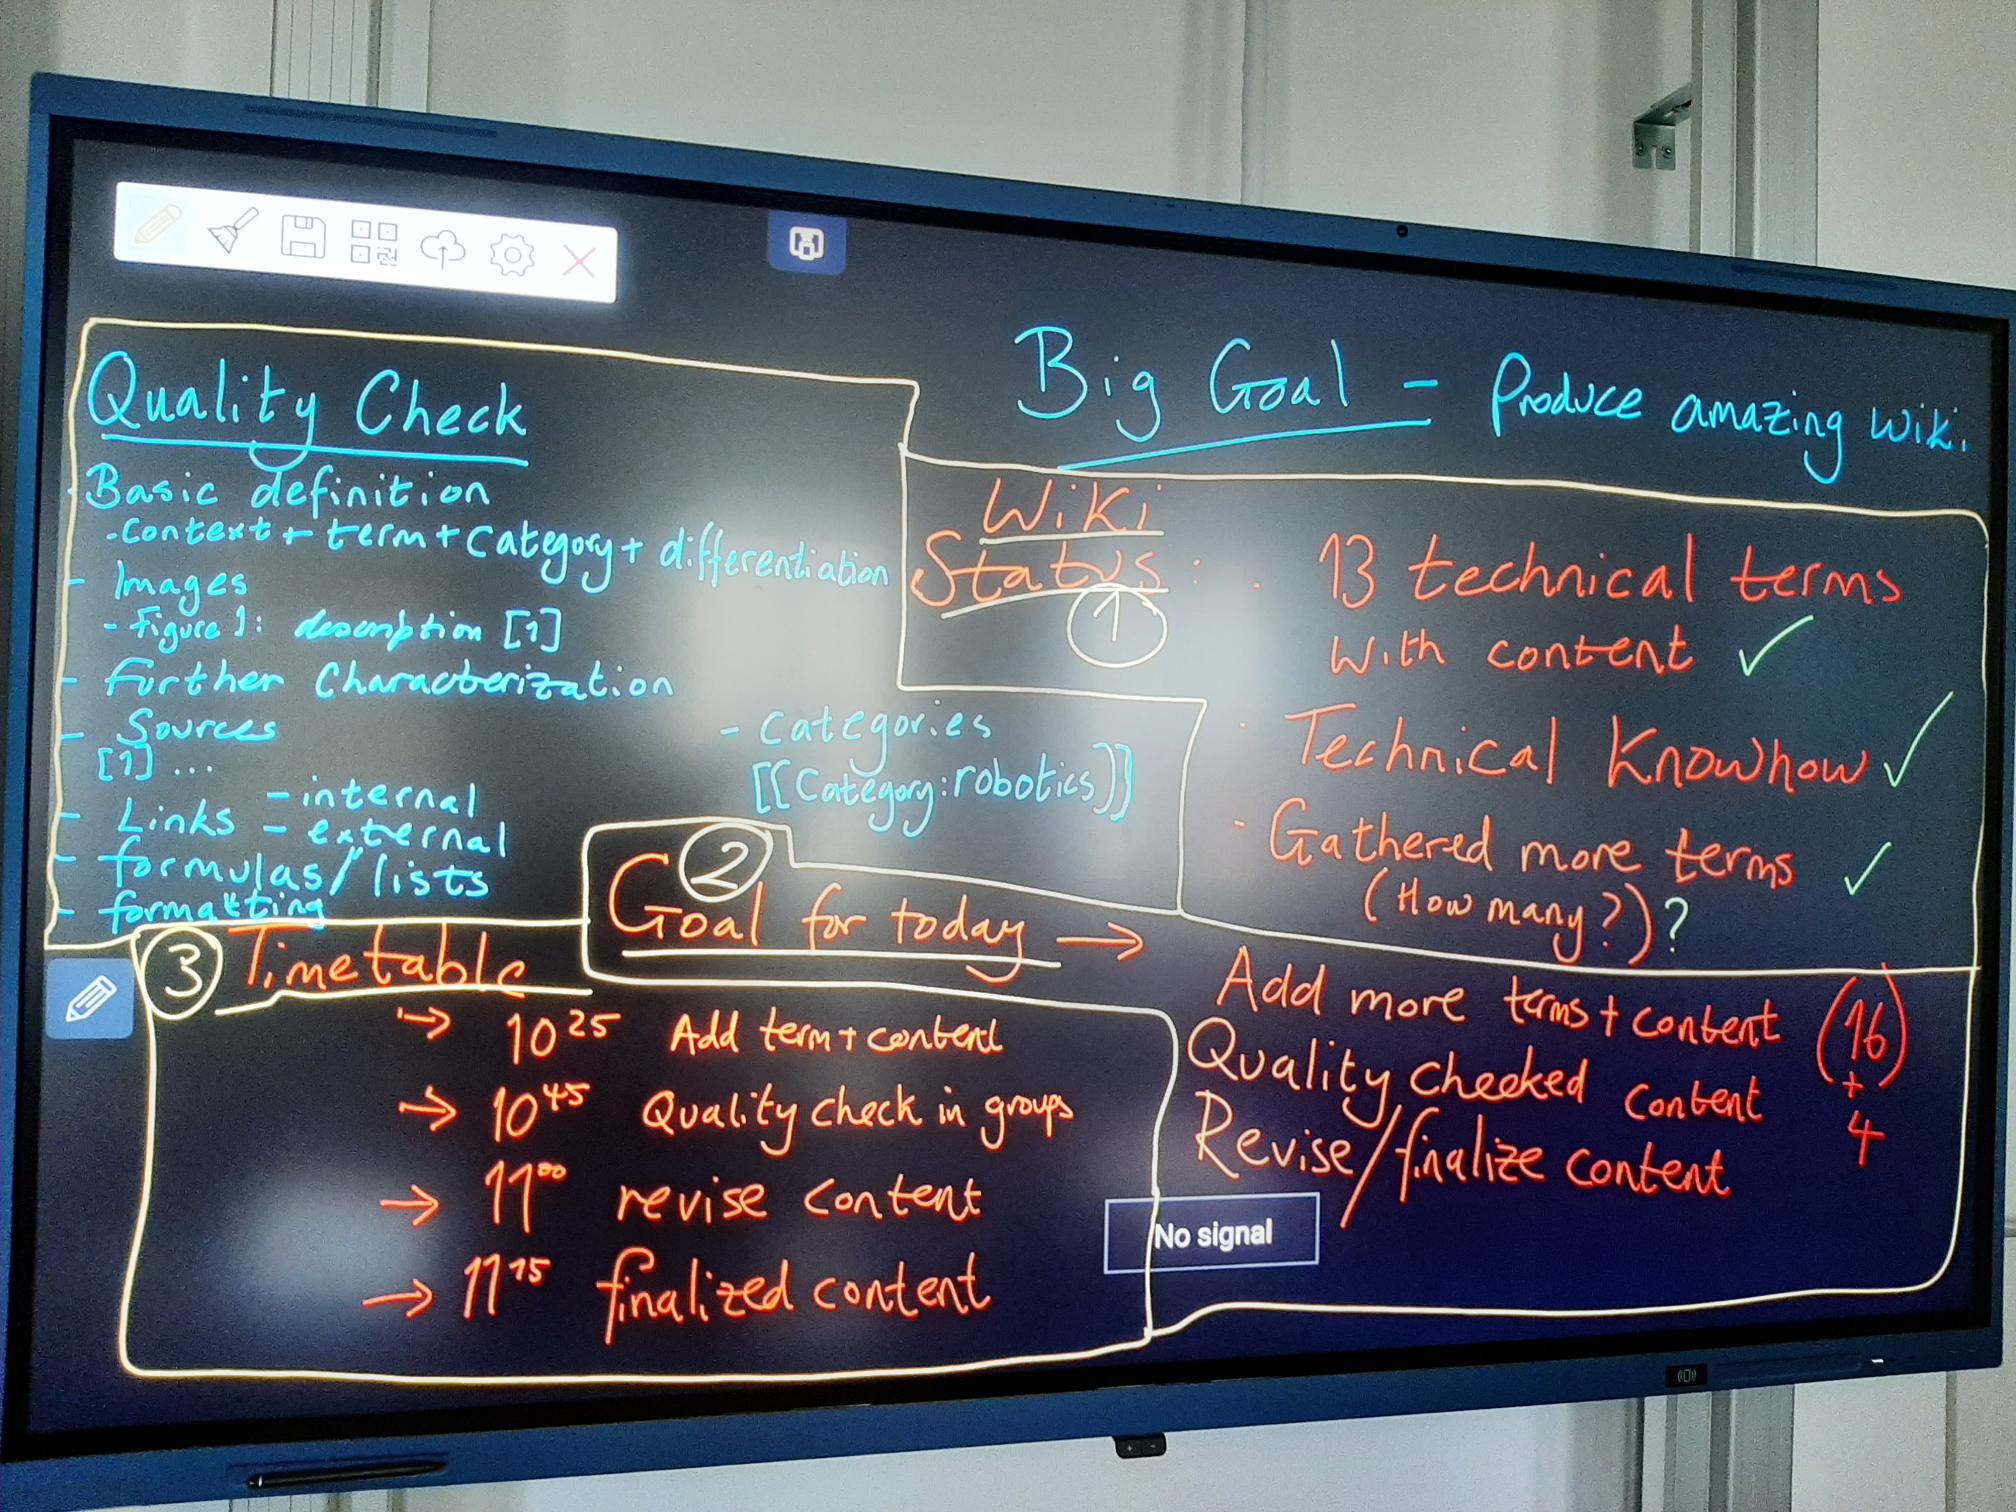 Big Goal - Produce amazing wiki.
Quality Check
Basic definition
- Context + term + category + differentiation
- Images
- Figure 1: description [1]
- further characterization
- Sources
[1] ...
- Links - internal
- external
- formulas/lists
- formatting
- Categories
[[Category:robotics]]
Wiki
Status:
1
· 13 technical terms
with content ✓
· Technical Knowhow ✓
· Gathered more terms ✓
(How many?) ?
2
Goal for today →
Add more terms + content (16)
Quality checked content +
4
Revise/finalize content
3 Timetable
→ 10²⁵ Add term + content
→ 10⁴⁵ Quality check in groups
→ 11⁰⁰ revise content
→ 11¹⁵ finalized content
No signal